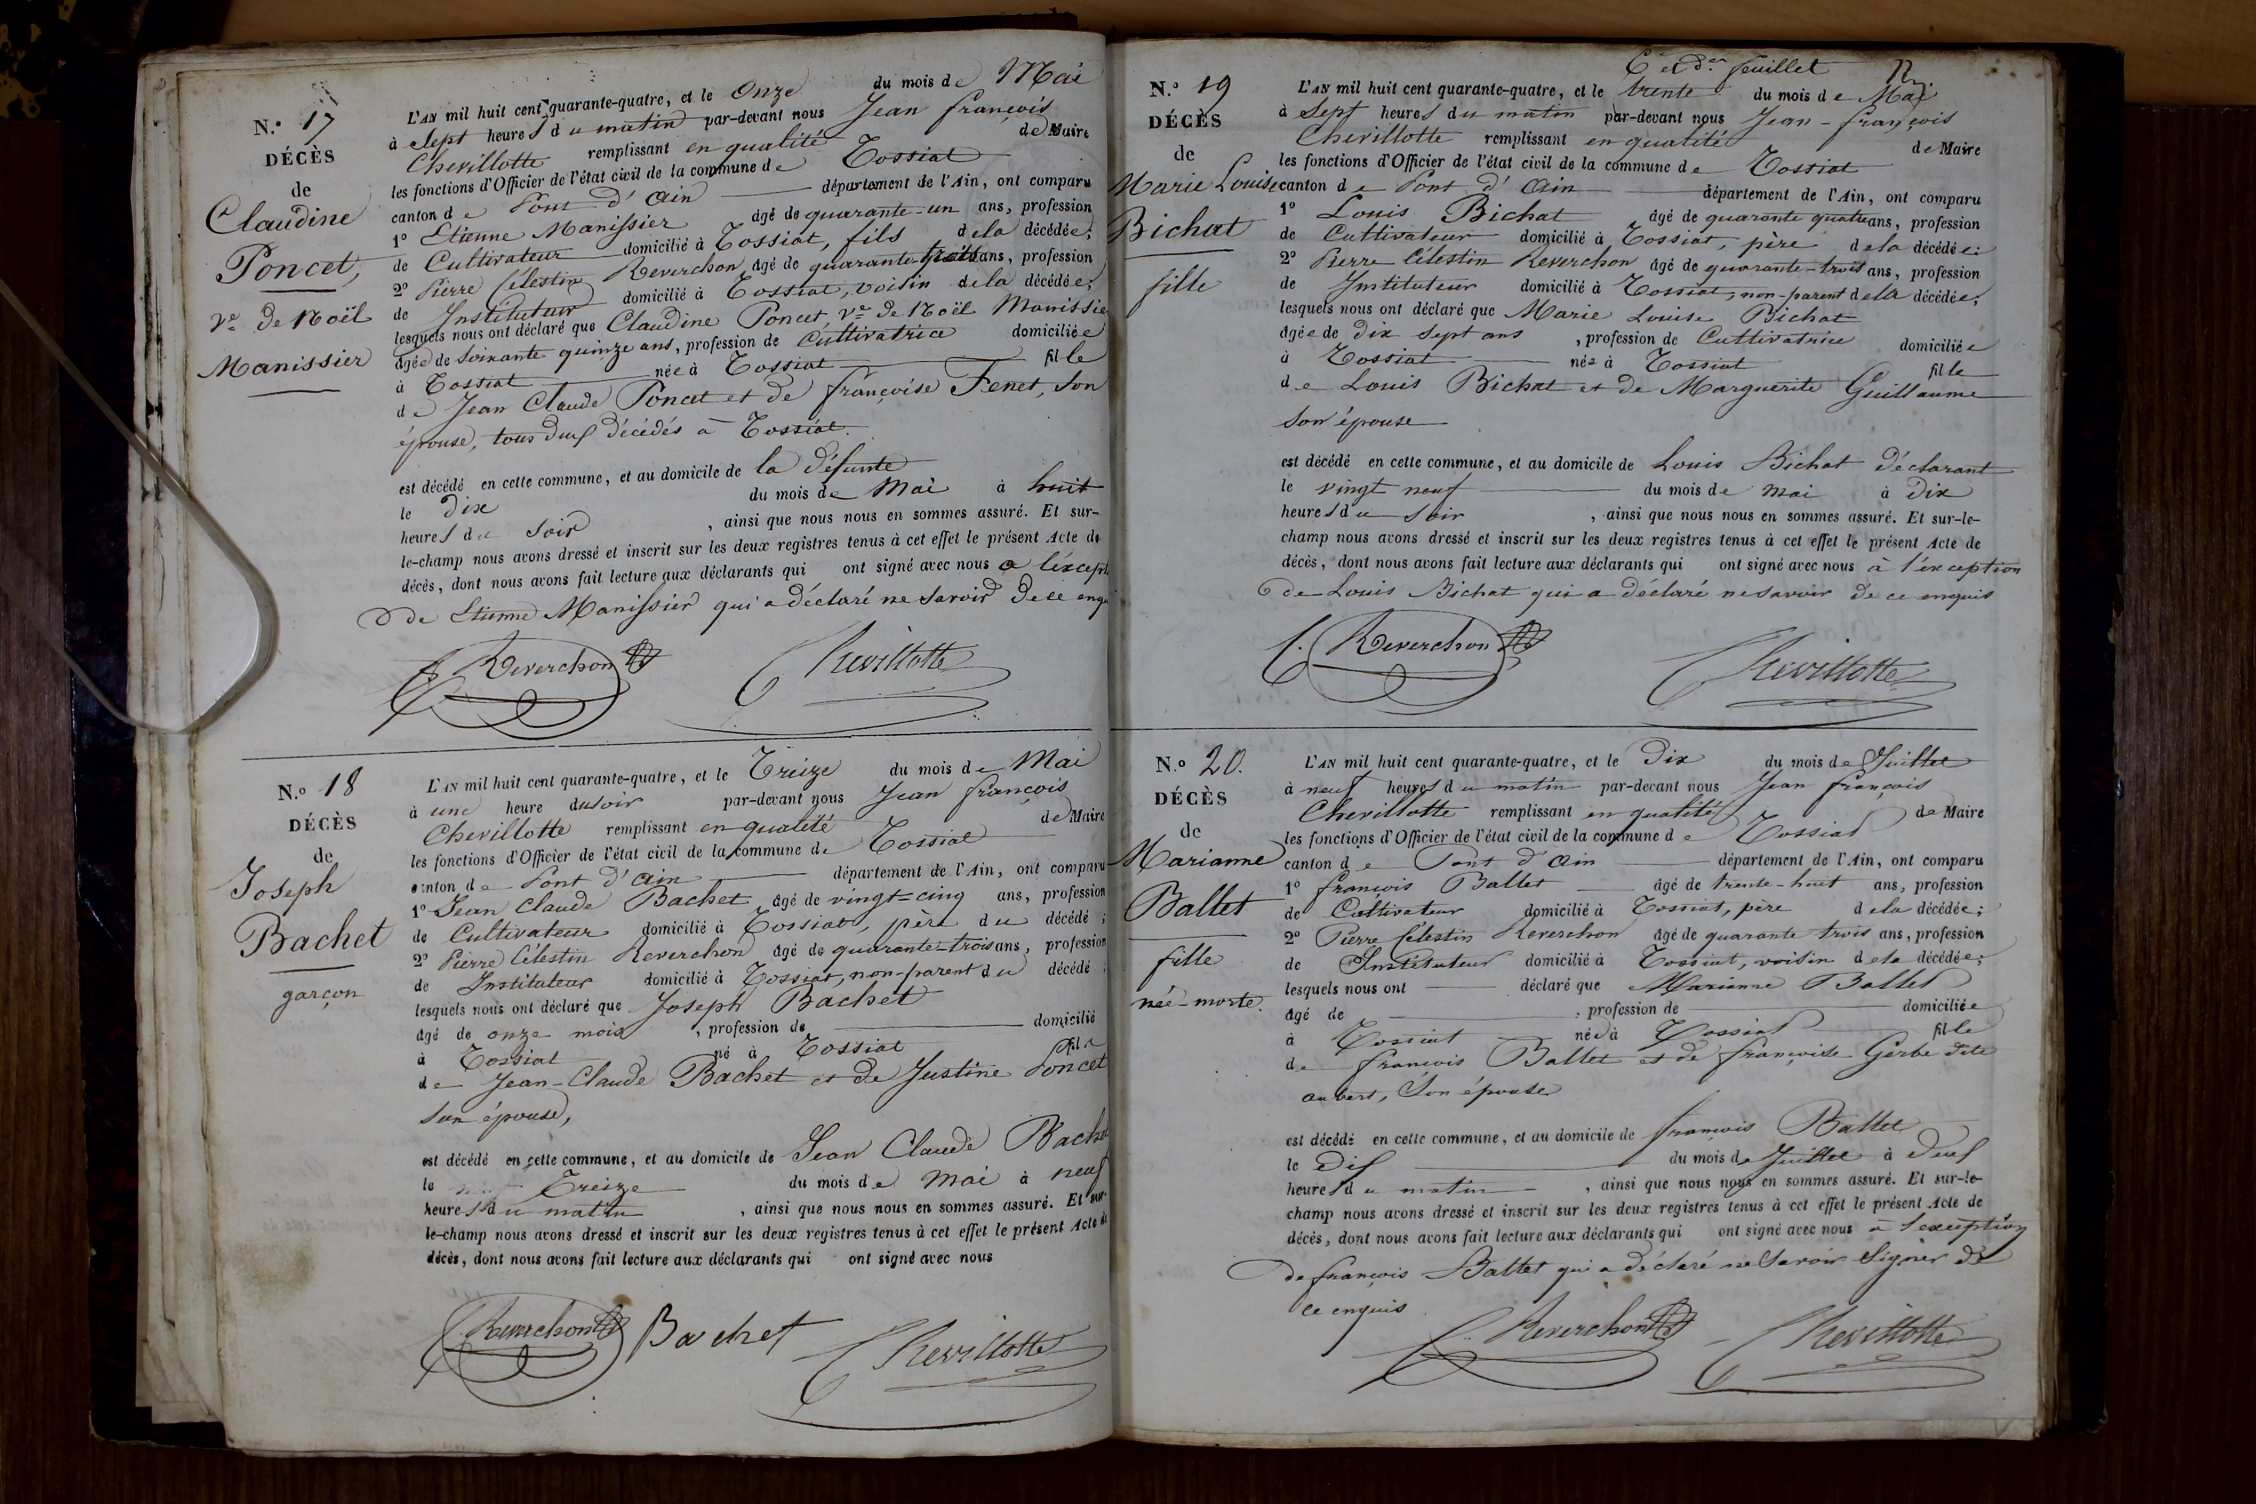 N.º 17
DÉCÈS
de
Claudine
Poncet,
Ve de Noël
Manissier
L'AN mil huit cent quarante-quatre, et le Onze du mois de Mai
à Sept heures du matin par-devant nous Jean françois
Chevillotte remplissant en qualité de Maire
les fonctions d'Officier de l'état civil de la commune de Tossiat
canton de Pont d'Ain département de l'Ain, ont comparu
1º Etienne Manissier âgé de quarante-un ans, profession
de Cultivateur domicilié à Tossiat, fils de la décédée;
2º Pierre Célestin Reverchon âgé de quarante-trois ans, profession
de Instituteur domicilié à Tossiat, voisin de la décédée;
lesquels nous ont déclaré que Claudine Poncet Ve de Noël Manissie
âgée de soixante quinze ans, profession de Cultivatrice domiciliée
à Tossiat née à Tossiat fille
de Jean Claude Poncet et de françoise Fenet, son
épouse, tous deux décédés à Tossiat.
est décédé en cette commune, et au domicile de la défunte
le dix du mois de Mai à huit
heures du soir, ainsi que nous nous en sommes assuré. Et sur-
le-champ nous avons dressé et inscrit sur les deux registres tenus à cet effet le présent Acte de
décès, dont nous avons fait lecture aux déclarants qui ont signé avec nous a l'except
de Etienne Manissier qui a déclaré ne savoir de ce enqu
Reverchon Chevillotte
N.º 18
DÉCÈS
de
Joseph
Bachet
garçon
L'AN mil huit cent quarante-quatre, et le Treize du mois de Mai
à une heure du soir par-devant nous Jean françois
Chevillotte remplissant en qualité de Maire
les fonctions d'Officier de l'état civil de la commune de Tossiat
canton de Pont d'Ain département de l'Ain, ont comparu
1º Jean Claude Bachet âgé de vingt=cinq ans, profession
de Cultivateur domicilié à Tossiat, père du décédé;
2º Pierre Célestin Reverchon âgé de quarante-trois ans, profession
de Instituteur domicilié à Tossiat, non-parent du décédé;
lesquels nous ont déclaré que Joseph Bachet
âgé de onze mois, profession de domicilié
à Tossiat né à Tossiat fils
de Jean-Claude Bachet et de Justine Poncet
son épouse,
est décédé en cette commune, et au domicile de Jean Claude Bachet
le Treize du mois de Mai à neuf
heures du matin, ainsi que nous nous en sommes assuré. Et sur-
le-champ nous avons dressé et inscrit sur les deux registres tenus à cet effet le présent Acte de
décès, dont nous avons fait lecture aux déclarants qui ont signé avec nous
Reverchon Bachet Chevillotte
6e et der feuillet
N.º 19
DÉCÈS
de
Marie Louise
Bichat
fille
L'AN mil huit cent quarante-quatre, et le trente du mois de Mai
à Sept heures du matin par-devant nous Jean-françois
Chevillotte remplissant en qualité de Maire
les fonctions d'Officier de l'état civil de la commune de Tossiat
canton de Pont d'Ain département de l'Ain, ont comparu
1º Louis Bichat âgé de quarante quatre ans, profession
de Cultivateur domicilié à Tossiat, père de la décédée:
2º Pierre Célestin Reverchon âgé de quarante-trois ans, profession
de Instituteur domicilié à Tossiat, non-parent de la décédée;
lesquels nous ont déclaré que Marie Louise Bichat
âgée de dix sept ans, profession de Cultivatrice domiciliée
à Tossiat née à Tossiat fille
de Louis Bichat et de Marguerite Guillaume
son épouse
est décédé en cette commune, et au domicile de Louis Bichat déclarant
le vingt neuf du mois de mai à dix
heures du soir, ainsi que nous nous en sommes assuré. Et sur-le-
champ nous avons dressé et inscrit sur les deux registres tenus à cet effet le présent Acte de
décès, dont nous avons fait lecture aux déclarants qui ont signé avec nous à l'exception
de Louis Bichat qui a déclaré ne savoir de ce enquis
C. Reverchon Chevillotte
N.º 20.
DÉCÈS
de
Marianne
Ballet
fille
née-morte.
L'AN mil huit cent quarante-quatre, et le Dix du mois de Juillet
à neuf heures du matin par-devant nous Jean françois
Chevillotte remplissant en qualité de Maire
les fonctions d'Officier de l'état civil de la commune de Tossiat
canton de Pont d'Ain département de l'Ain, ont comparu
1º françois Ballet âgé de trente-huit ans, profession
de Cultivateur domicilié à Tossiat, père de la décédée;
2º Pierre Célestin Reverchon âgé de quarante trois ans, profession
de Instituteur domicilié à Tossiat, voisin de la décédée;
lesquels nous ont déclaré que Marianne Ballet
âgé de, profession de domiciliée
à Tossiat née à Tossiat fille
de françois Ballet et de françoise Gerbe dite
aubert, son épouse
est décédé en cette commune, et au domicile de françois Ballet
le Dix du mois de Juillet à deux
heures du matin, ainsi que nous nous en sommes assuré. Et sur-le-
champ nous avons dressé et inscrit sur les deux registres tenus à cet effet le présent Acte de
décès, dont nous avons fait lecture aux déclarants qui ont signé avec nous à l'exception
de françois Ballet qui a déclaré ne savoir signer de
ce enquis
C. Reverchon Chevillotte